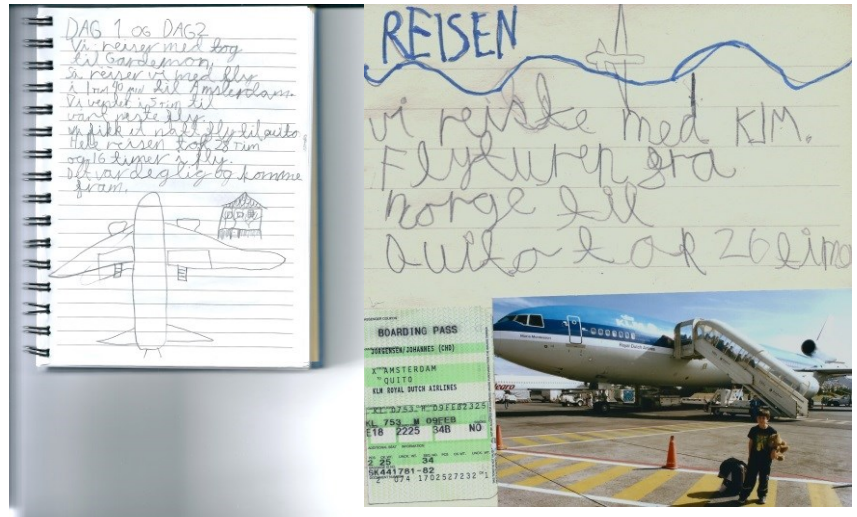 DAG 1 OG DAG2
Vi reiser med tog
til Gardemon.
Så reiser vi med fly
i 1 time 40 min til Amsterdam.
Vi venter i 5 tim til
vårt neste fly.
vi fikk et natt fly til quito.
Hele reisen tok 26 tim
og 16 timer i fly.
Det var deglig og komme
fram.
REISEN
vi reiste med KLM.
Flyturen fra
norge til
Quito tok 26 timer
BOARDING PASS
JORGENSEN/JOHANNES (CHD)
X AMSTERDAM
QUITO
KLM ROYAL DUTCH AIRLINES
KL 0753 M 09FEB2325
KL 753 M 09FEB
E18 2225 34B NO
2 25 34
SK441781-82
2 074 1702527232 1
Royal Dutch Airlines